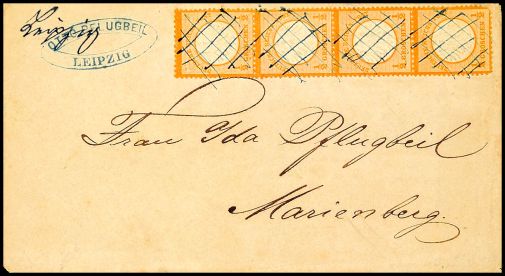 Leipzig
PFLUGBEIL
LEIPZIG
Frau Ida Pflugbeil
Marienberg.